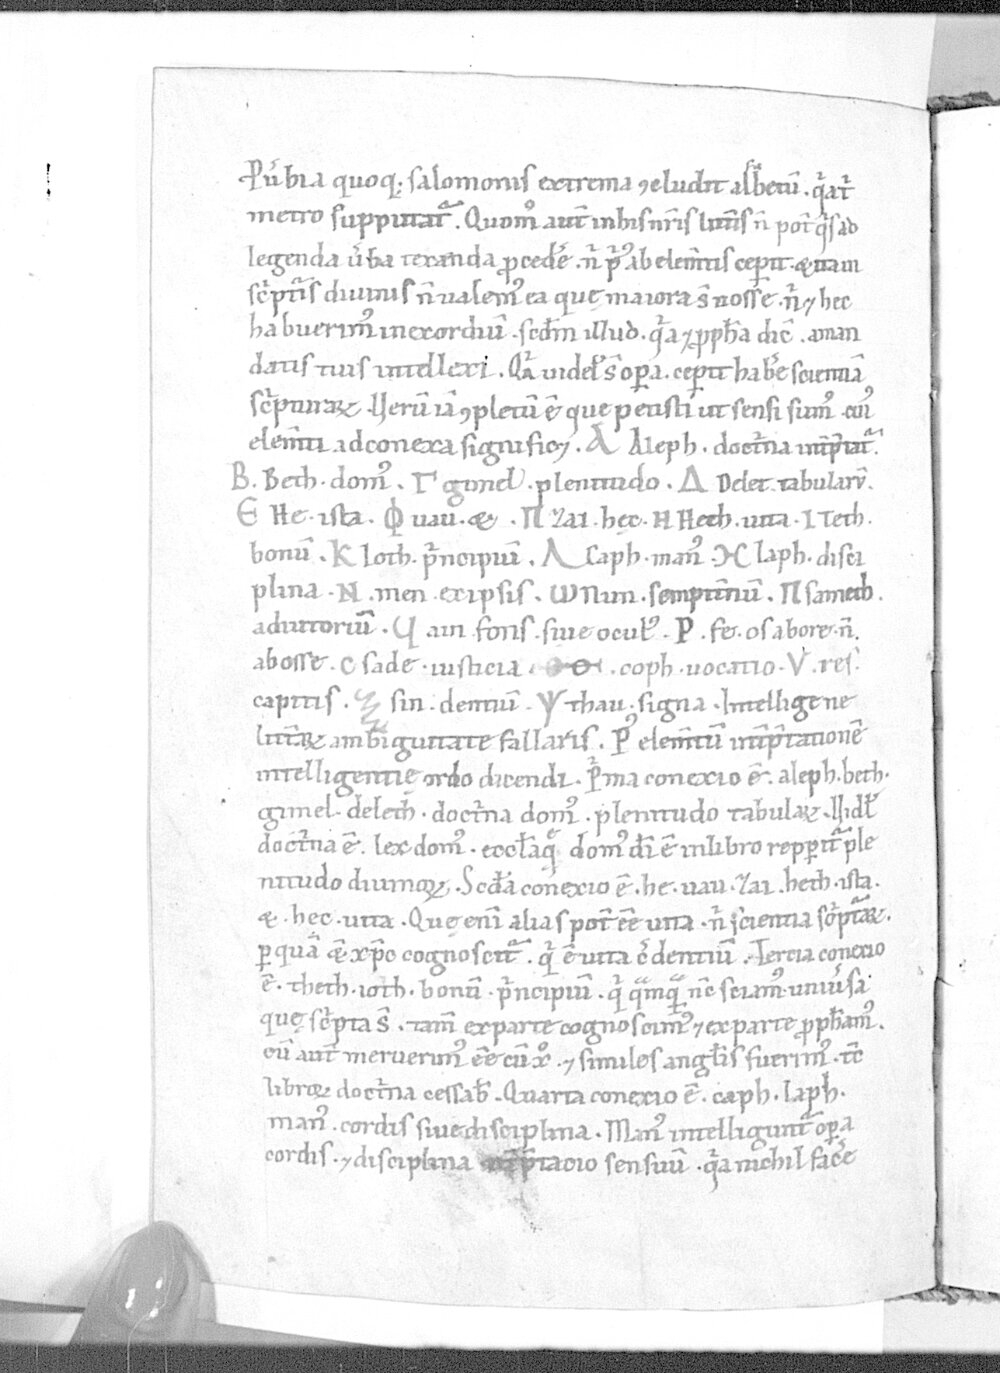 Puͥbia quoq; salomonis extrema ꝯcludit alfbetū. qͣatͬ
metro supputatᷣ. Quomͦ aut̄ in his nr̄is litt̄is n̄ potͥ qͥs ad
legenda ūba texenda ꝓcedē. nͥ pͥꝰ ab elem̄tis ceperit. & nam
sc̄ptͥis diuinis n̄ ualem᷒ ea quę maiora s̄ nosse. nͥ ⁊ hec
habuerim᷒ in exordiū. scd̄m illud. qͥa ⁊ ꝓph̄a dic̄. aman
datis tuis intellexi. Qͥa uidelꝫ s̄ opa. cepit habē scientiā
sc̄pturaꝝ. Uerū iā ꝯpletū ē que petisti ut sensi sum᷒. cui᷒
elem̄ti ad conexa significꝫ. A Aleph. doctͥna int̄p̄tatᷣ.
B. Beth. dom᷒. Γ gimel. plenitudo. Δ Delet. tabularū.
E He. ista. ϕ uau. &. Π Zai. hęc. H Heth. uita. I Teth.
bonū. K Ioth. pͥncipiū. Λ Caph. man᷒. ꓘ laph. disci
plina. N. men. ex ipsis. ω Nun. sempit̄nū. Π sameth.
adiutoriū. Ч ain. fons. siue ocul᷒. P. fe. os abore. n̄.
abosse. C sade. iusticia. coph. uocatio. V. res.
capitis. sin. dentiū. Ψ thau. signa. Intellige ne
litt̄aꝝ ambiguitate fallaris. P᷒ elem̄tū int̄p̄tationē
intelligentię ordo dicendi. Pͥma conexio ē. aleph. beth.
gimel. deleth. doctͥna dom᷒. plenitudo tabulaꝝ. Uidelꝫ
doctͥna ē. lex dom᷒. eccl̄a qͥ dom᷒ di ē in libro reppitᷣ ple
nitudo diuinoꝝ. Scd̄a conexio ē. he. uau. Zai. heth. ista.
&. hec. uita. Quę eni alias potͥ ēē uita. nͥ scientia sc̄ptͥaꝝ.
p quā & xp̄c cognoscitᷣ. qͥ ē uita c̄dentiū. Tercia conexio
ē. theth. ioth. bonū. pͥncipiū. qͥ quāmqͣ n̄c sciam᷒ uniūsa
quę sc̄pta s̄. tam̄ ex parte cognoscim᷒ ⁊ ex parte ꝓph̄am᷒.
cū aut̄ meruerim᷒ ēē cū xͦ. ⁊ similes angl̄is fuerim᷒. tc̄
libroꝝ doctͥna cessab̄. Quarta conexio ē. caph. laph.
man᷒. cordis siue disciplina. Man᷒ intelliguntᷣ opa
cordis. ⁊ disciplina int̄p̄tacio sensuū. qͥa nichil facē